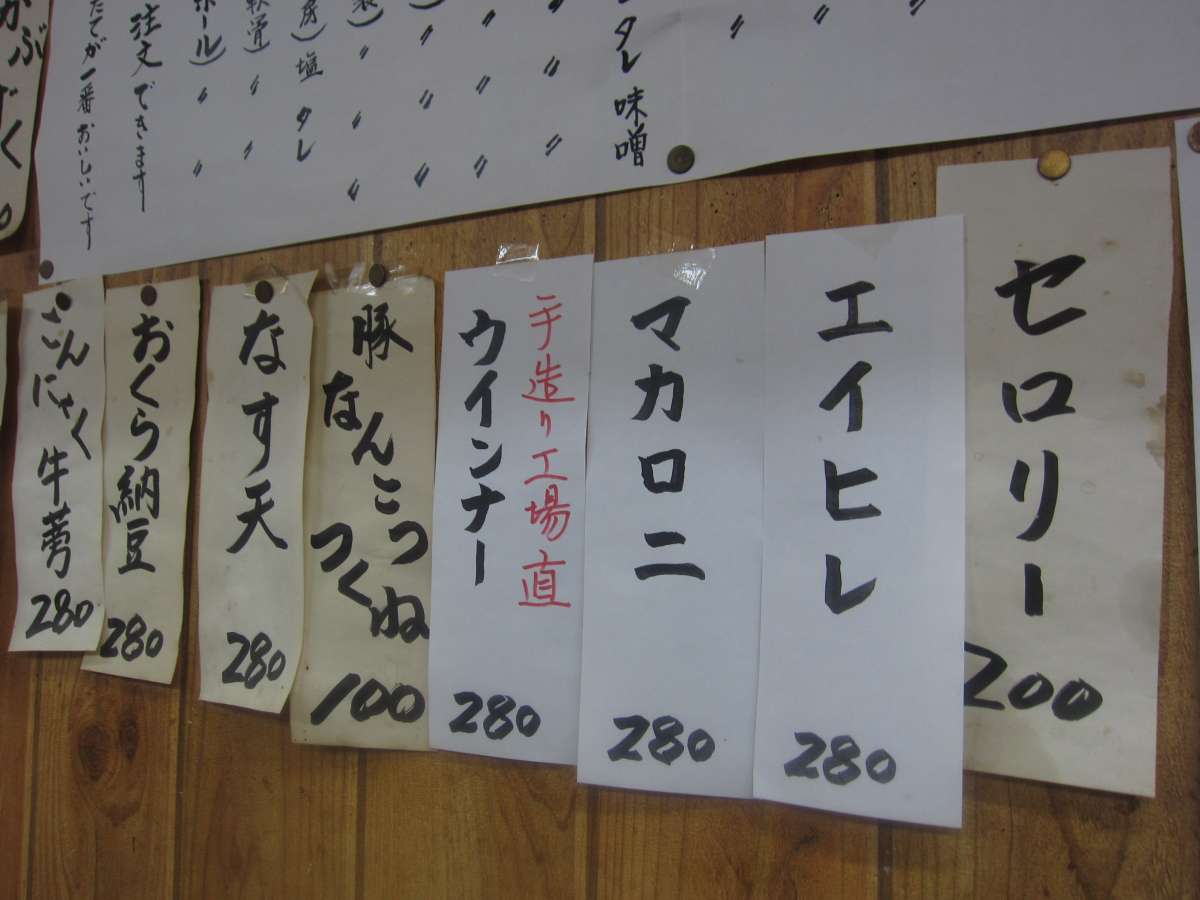 セロリー
200
エイヒレ
280
マカロニ
280
手造り工場直
ウインナー
280
豚なんこつ
つくね
100
なす天
280
おくら納豆
280
こんにゃく牛蒡
280
タレ 味噌
塩 タレ
注文できます
たてが一番おいしいです